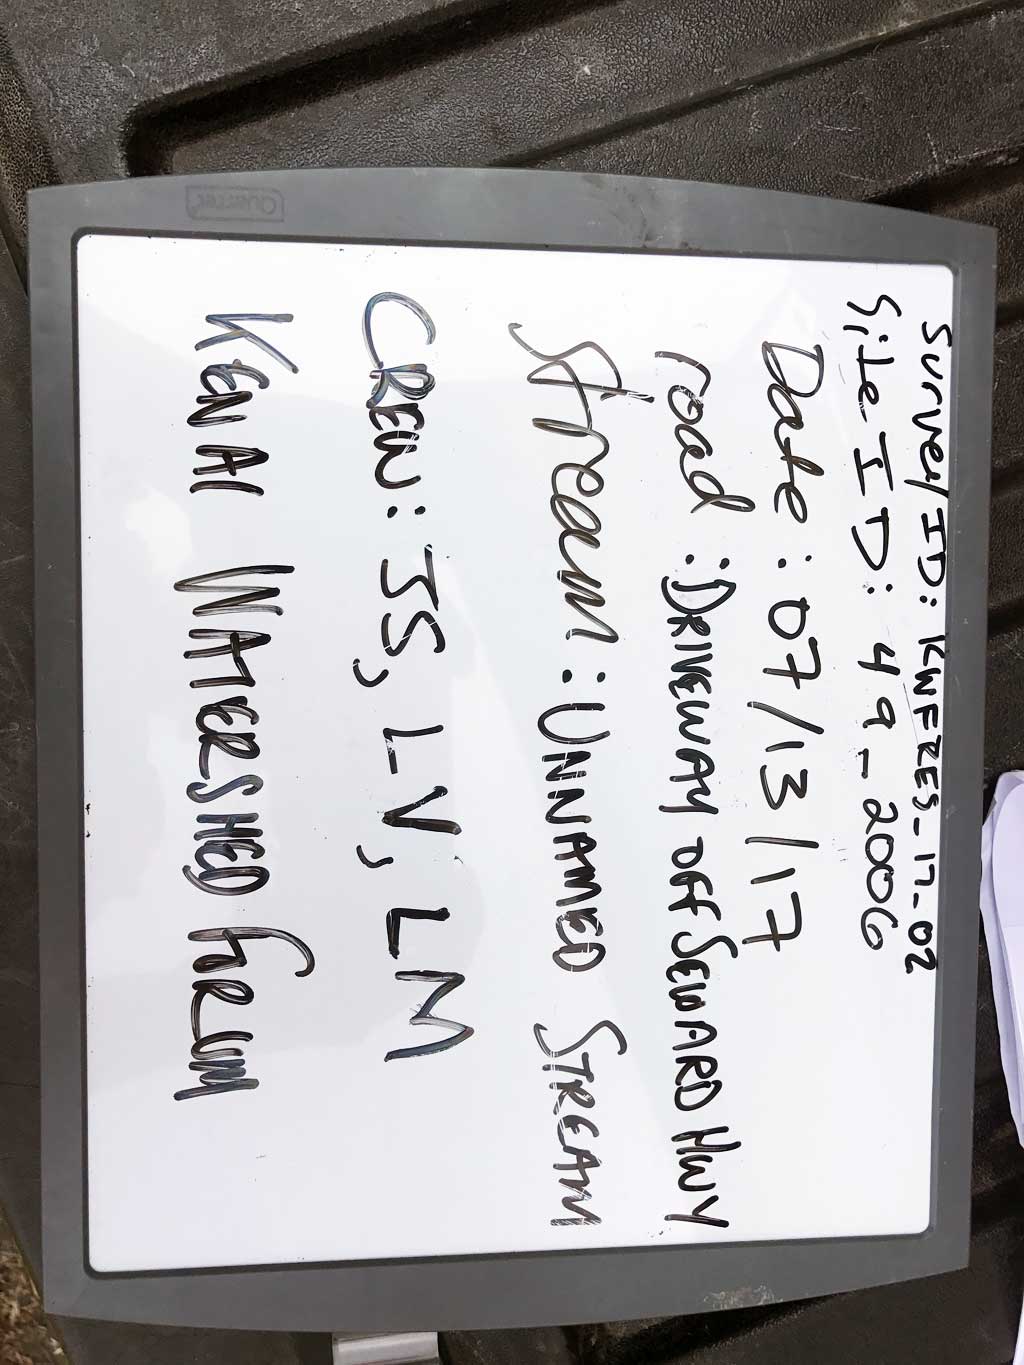 Survey ID: KWFRES_17_02
Site ID: 49_2006
Date: 07/13/17
road: DRIVEWAY OFF SEWARD HWY
Stream: UNNAMED STREAM
CREW: JS, LV, LM
KENAI WATERSHED FORUM
Quartet